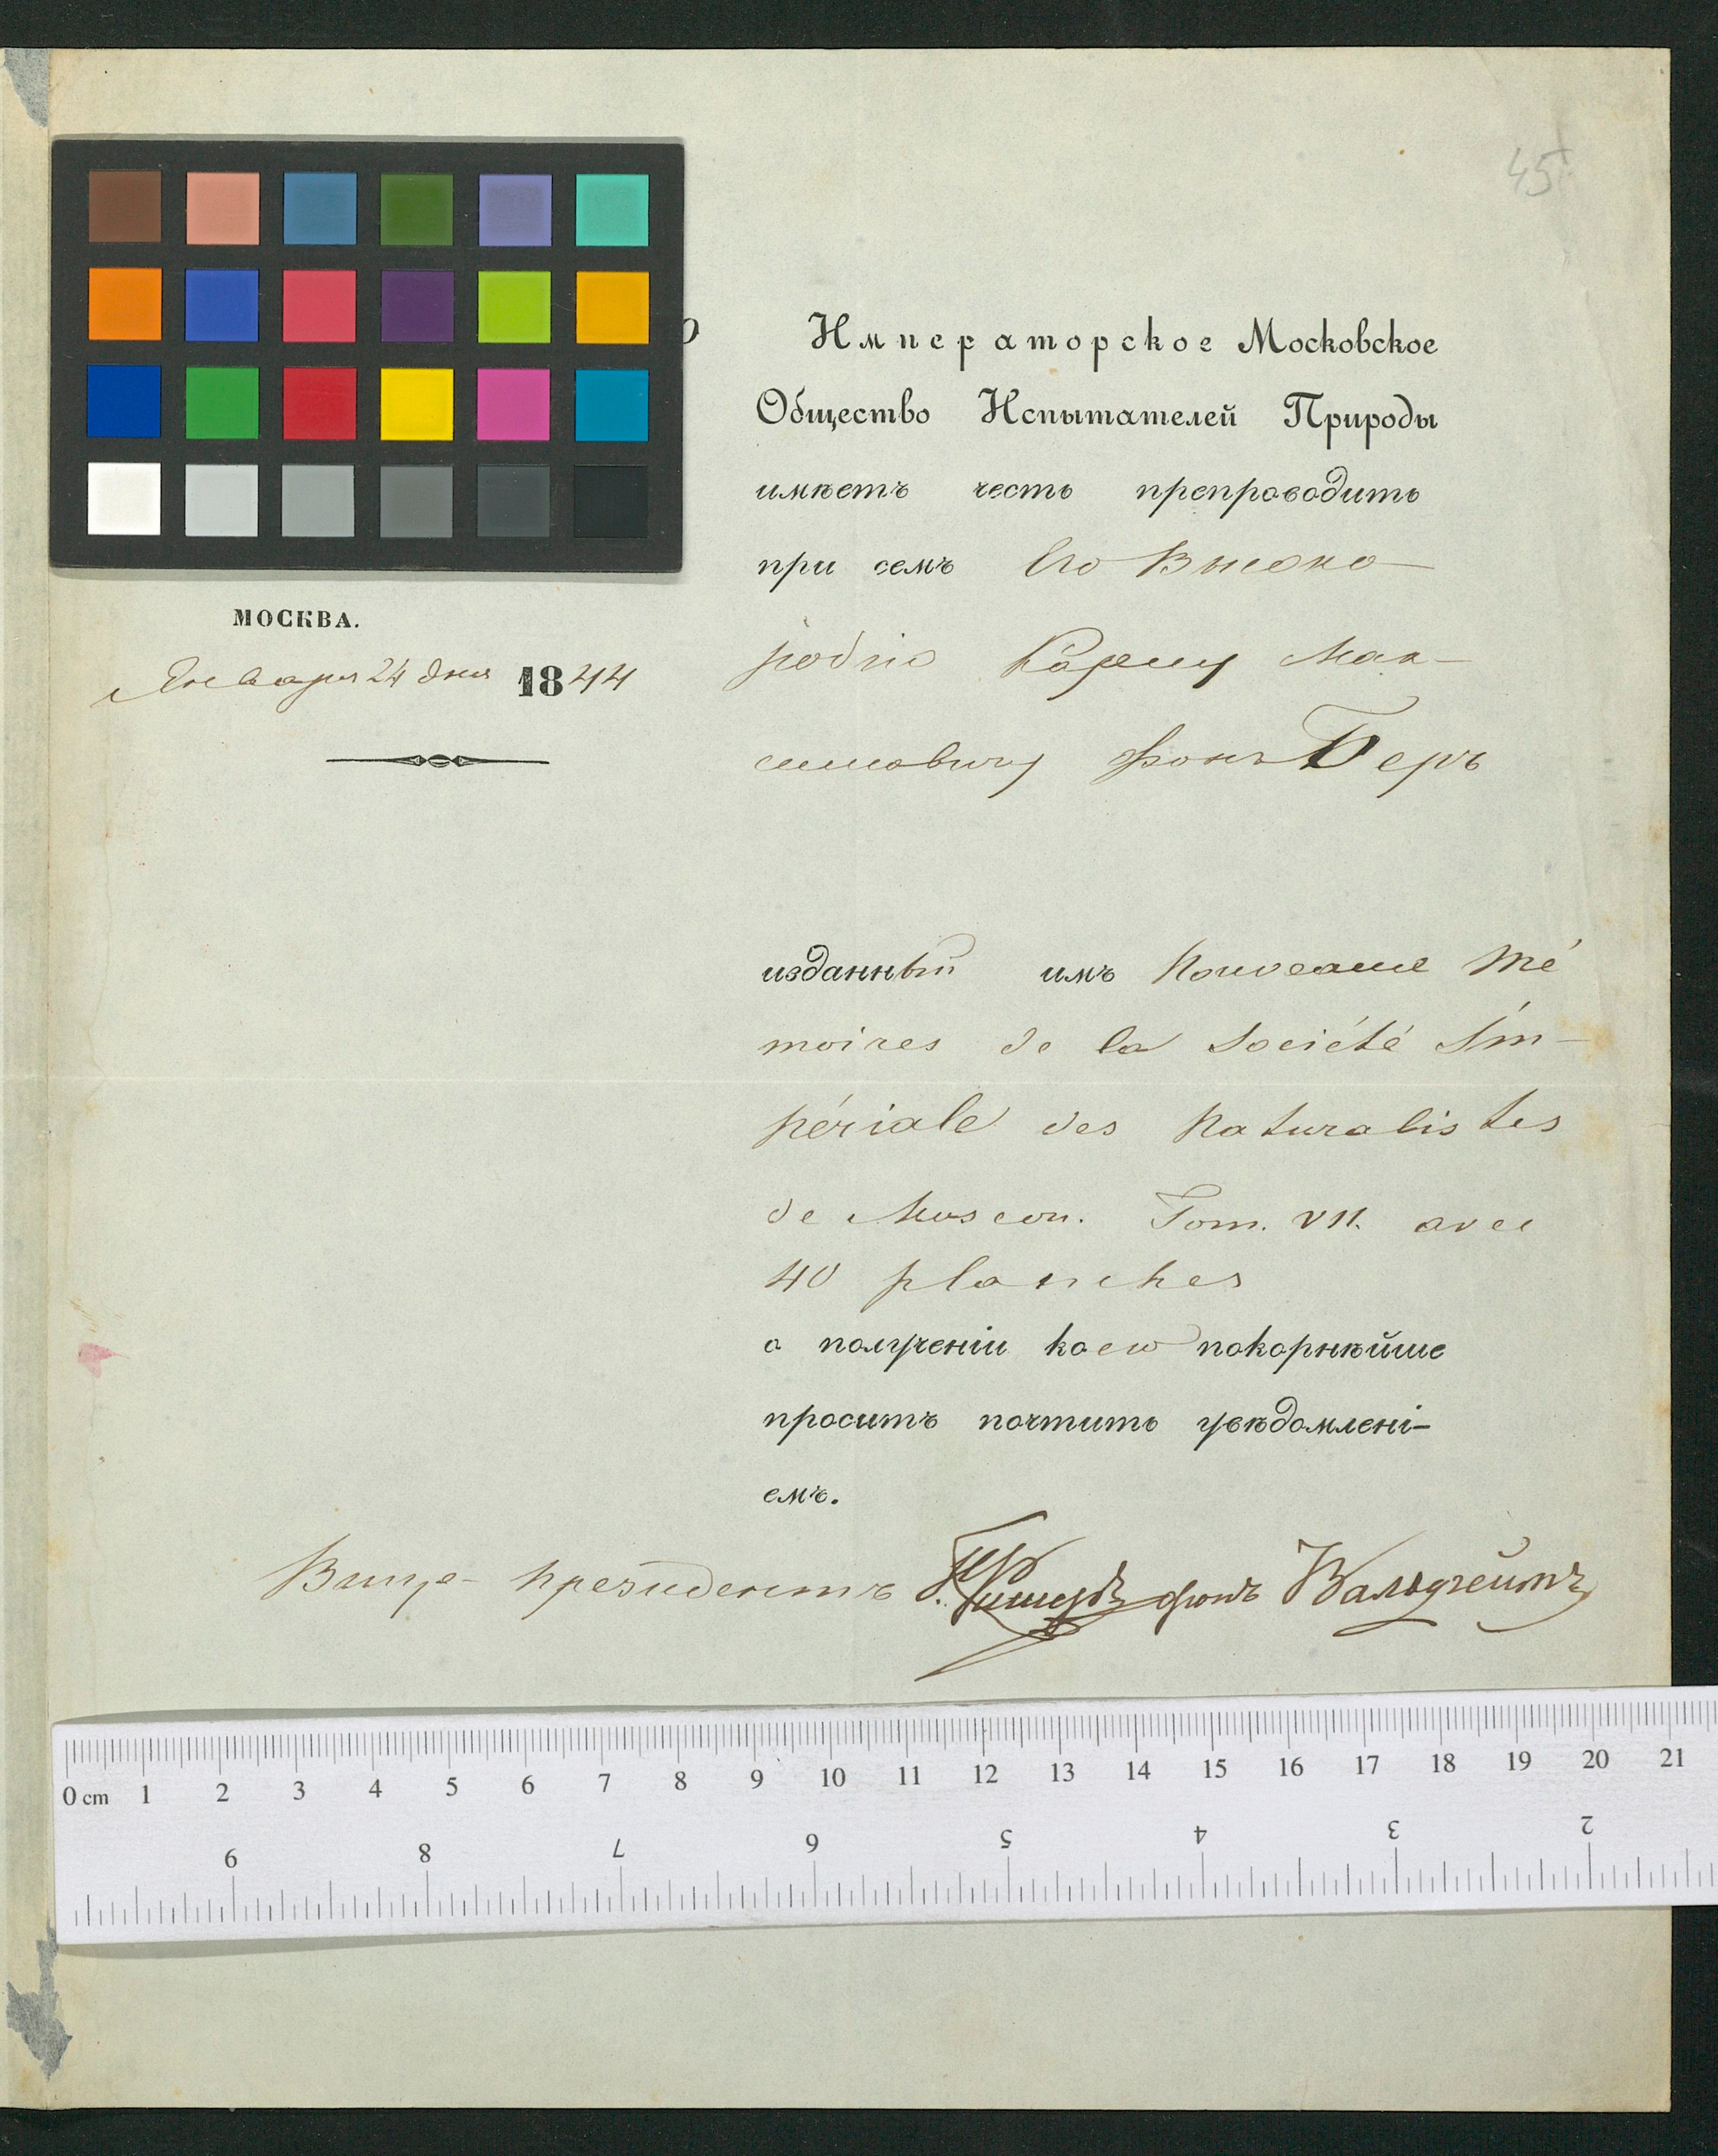 45
Императорское Московское
Общество Испытателей Природы
имѣетъ честь препроводить
при семъ Его Высоко-
родію Карлу Мак-
симовичу фонъ Беръ
МОСКВА.
Января 24 дня 1844
изданный имъ Nouveaux Mé
moires de la Société Im-
périale des Naturalistes
de Moscou. Tom. VII. avec
40 planches
о полученіи коего покорнѣйше
просить почтить увѣдомлені-
емъ.
Вице-президентъ Г. Фишеръ фонъ Вальдгеймъ
0 cm 1 2 3 4 5 6 7 8 9 10 11 12 13 14 15 16 17 18 19 20 21
9 8 7 6 5 4 3 2